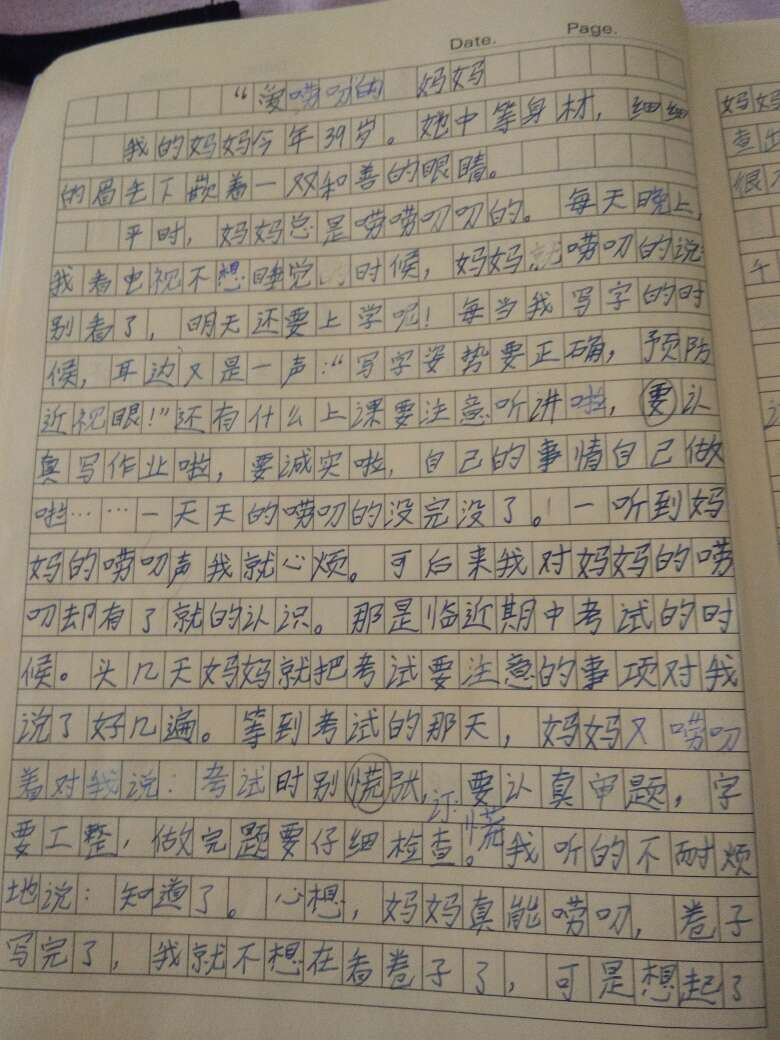 Date. Page.
“爱唠叨的 妈妈
我的妈妈今年39岁。她中等身材，细细
的眉毛下嵌着一双和善的眼睛。
平时，妈妈总是唠唠叨叨的。每天晚上，
我看电视不想睡觉的时候，妈妈就唠叨的说：
别看了，明天还要上学呢！每当我写字的时
候，耳边又是一声：“写字姿势要正确，预防
近视眼！”还有什么上课要注意听讲啦，要认
真写作业啦，要诚实啦，自己的事情自己做
啦……一天天的唠叨的没完没了。一听到妈
妈的唠叨声我就心烦。可后来我对妈妈的唠
叨却有了就的认识。那是临近期中考试的时
候。头几天妈妈就把考试要注意的事项对我
说了好几遍。等到考试的那天，妈妈又唠叨
着对我说：考试时别慌张，要认真审题，字
订：慌
要工整，做完题要仔细检查。我听的不耐烦
地说：知道了。心想，妈妈真能唠叨，卷子
写完了，我就不想在看卷子了，可是想起了
妈妈
查出